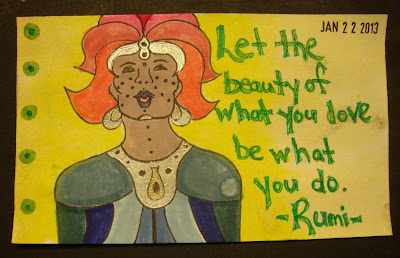 JAN 22 2013
Let the
beauty of
what you love
be what
you do.
-Rumi-